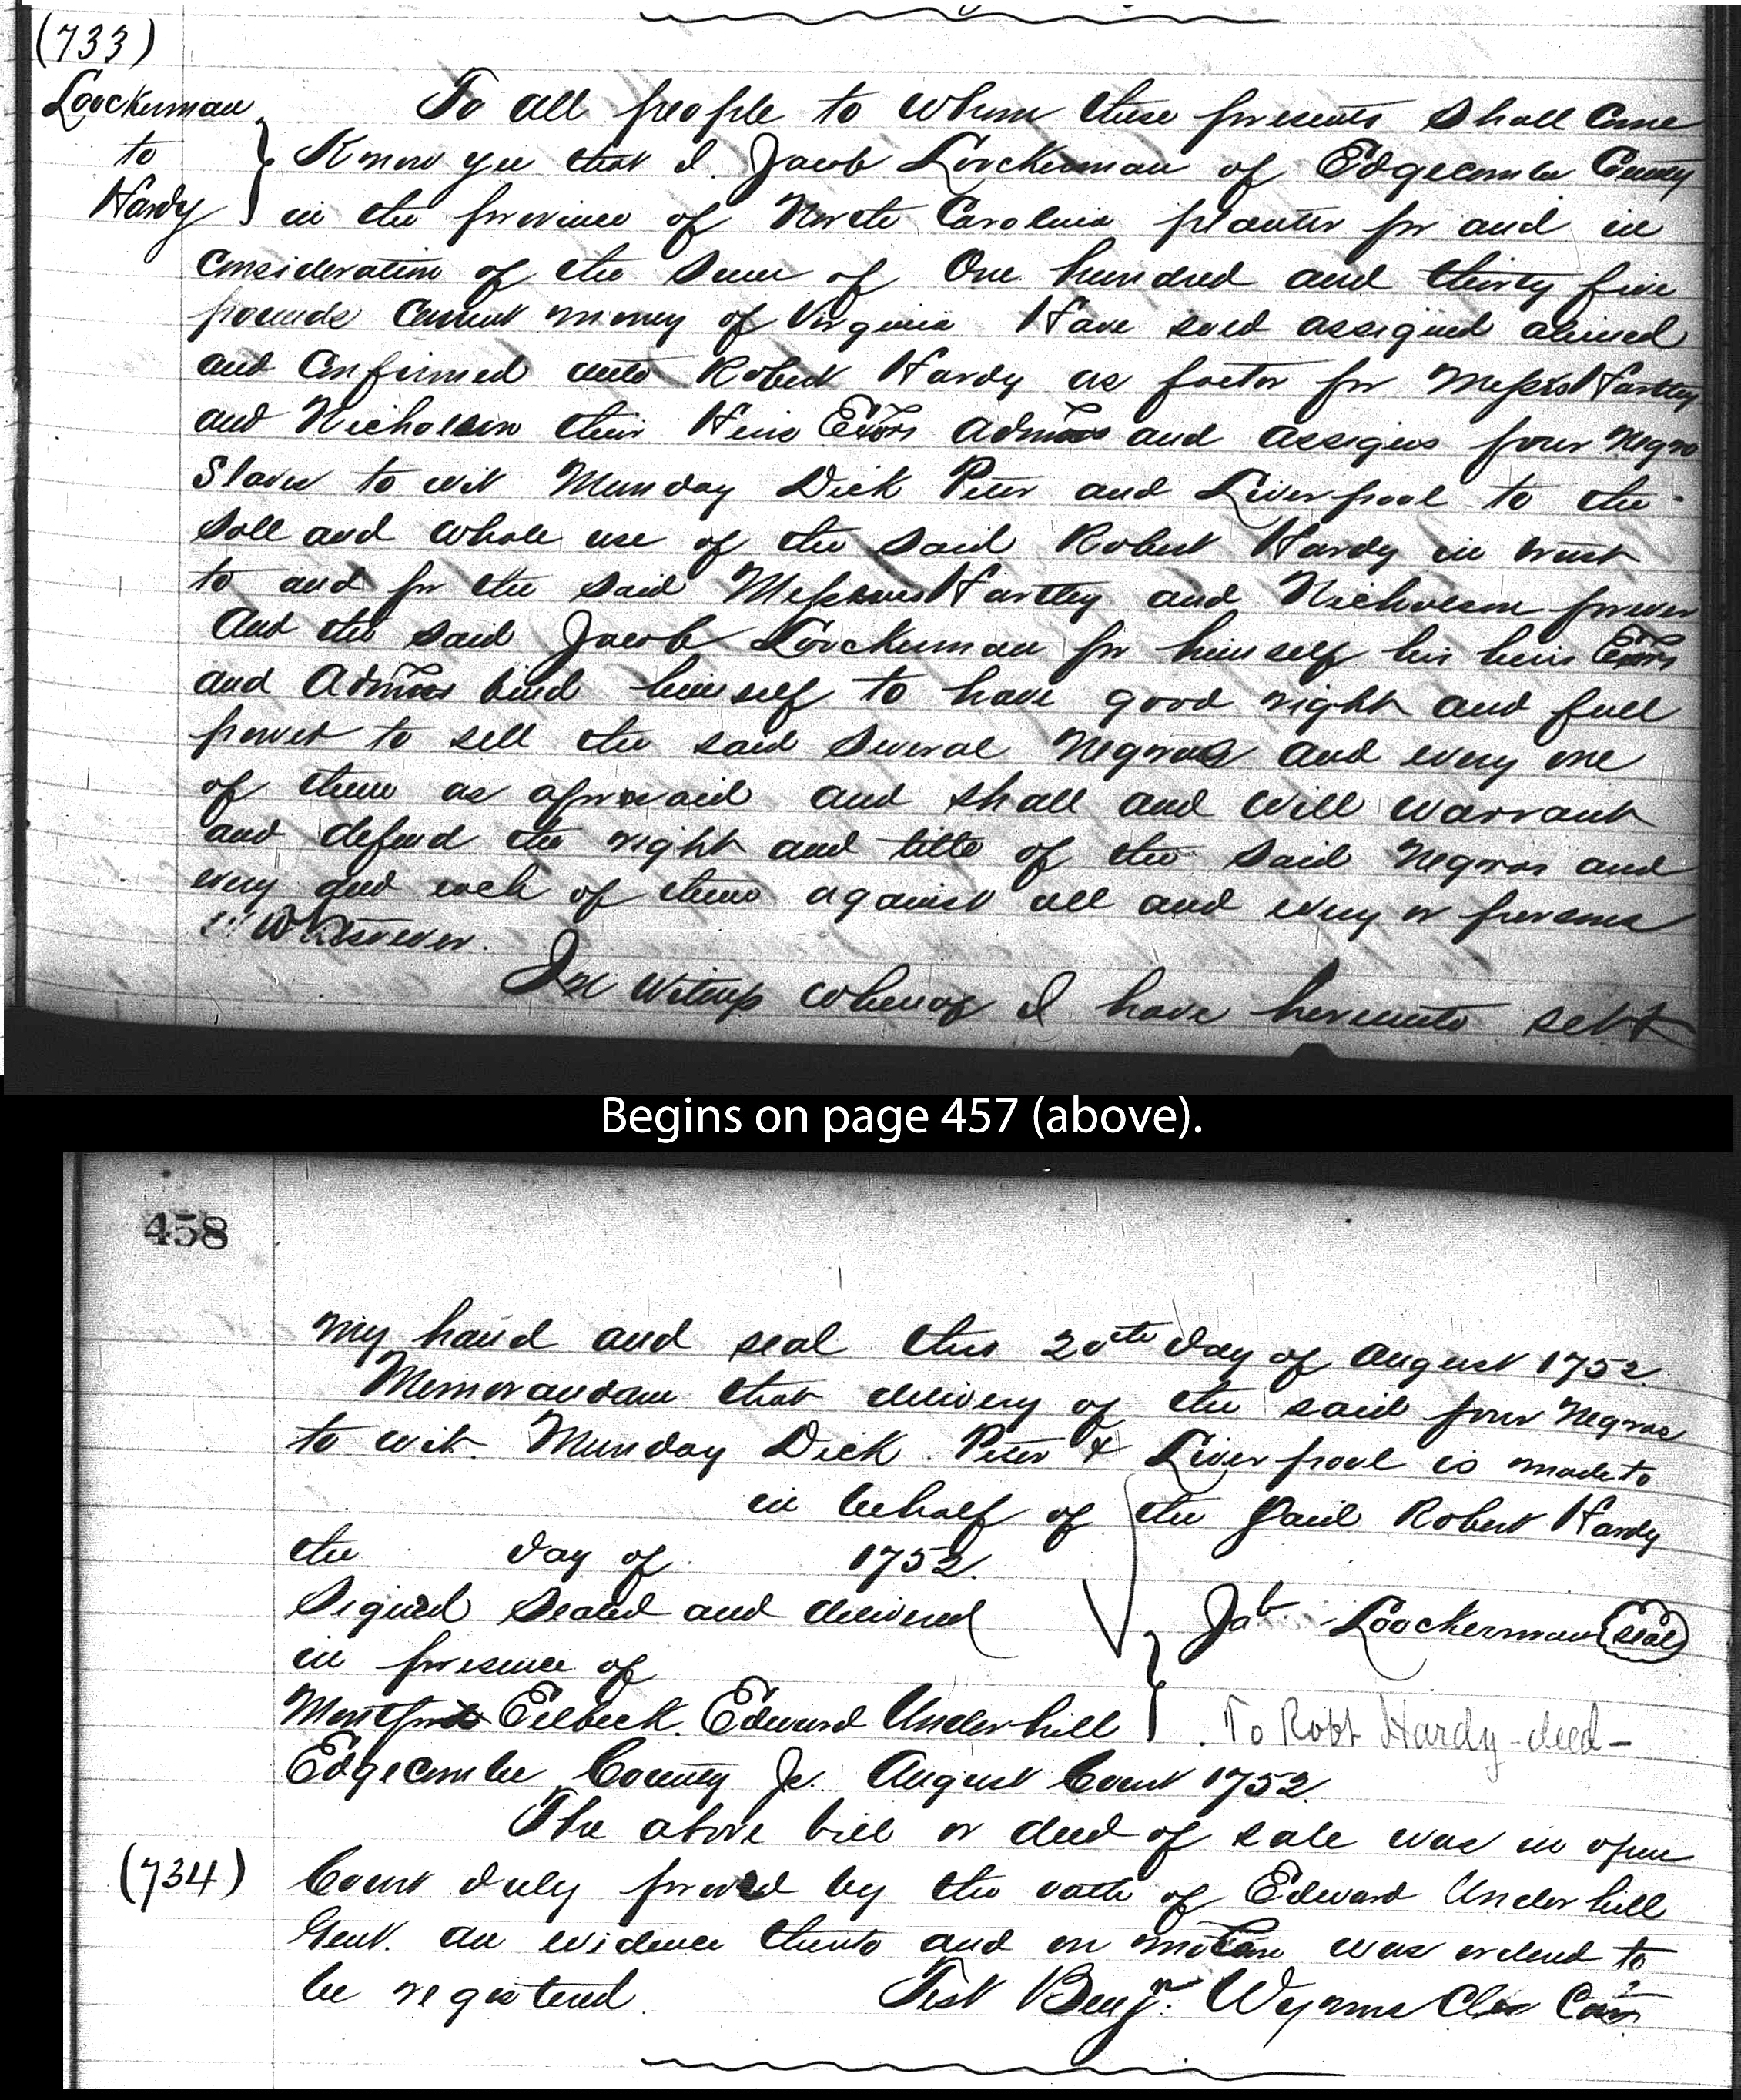 (733)
Loockerman
to
Hardy
To all people to whom these presents shall Come
Know yee that I. Jacob Loockerman of Edgecombe County
in the province of North Carolina planter for and in
Consideration of the Sum of One hundred and thirty five
pounds Current money of Virginia Have sold assigned aliened
and Confirmed unto Robert Hardy as factor for Messrs Hartley
and Nicholson their Heirs Exors Admors and assigns four Negro
Slaves to wit Munday Dick Peter and Liverpool to the
Soll and whole use of the said Robert Hardy in trust
to and for the said Messrs Hartley and Nicholson forever
And the said Jacob Loockerman for himself his heirs Exors
and Admors bind himself to have good right and full
power to sell the said Several Negroes and every one
of them as aforesaid and shall and will warrant
and defend the right and title of the said Negros and
every and each of them against all and every or persons
Whatsoever.
In Witness whereof I have hereunto sett
Begins on page 457 (above).
458
my hand and seal this 20th day of August 1752
Memorandam that delivery of the said four Negros
to wit. Munday Dick. Peter & Liverpool is made to
in behalf of the said Robert Hardy
the day of 1752.
Signed Sealed and delivered
Jab Loockerman (seal)
in presence of
Montfort Eelbeck. Edward Underhill
To Robt Hardy - deed -
Edgecombe County Sc. August Court 1752
The above bill or deed of sale was in open
(734)
Court duly proved by the oath of Edward Underhill
Gent. an evidence thereto and on motion was ordered to
be registered.
Test Benjn. Wynns Cler Cur